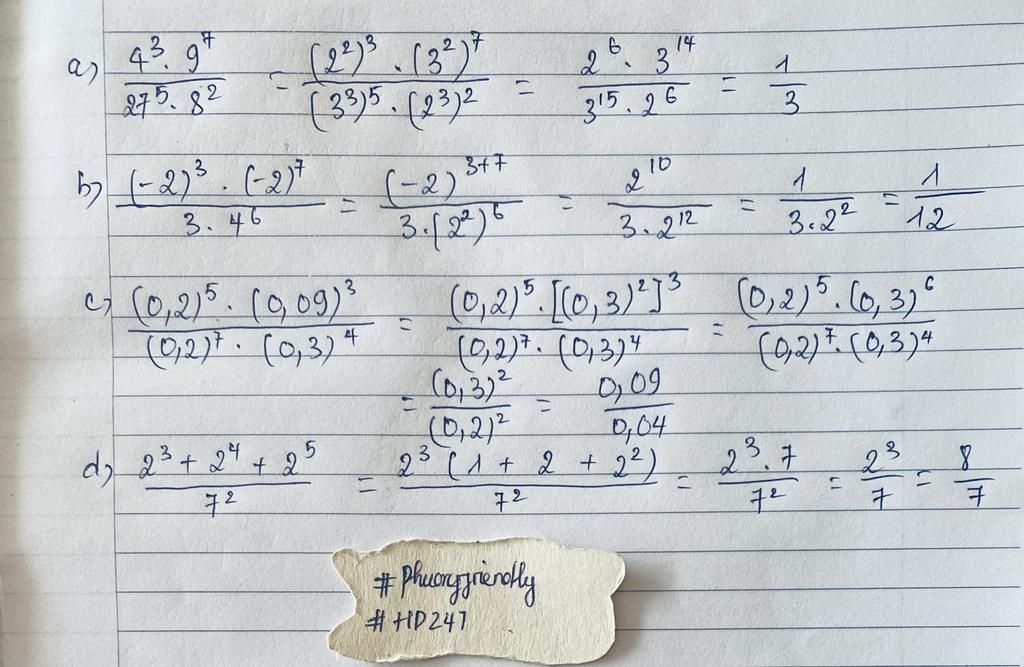 a) \frac{4^3 . 9^7}{27^5 . 8^2} = \frac{(2^2)^3 . (3^2)^7}{(3^3)^5 . (2^3)^2} = \frac{2^6 . 3^{14}}{3^{15} . 2^6} = \frac{1}{3}
b) \frac{(-2)^3 . (-2)^7}{3 . 4^6} = \frac{(-2)^{3+7}}{3 . (2^2)^6} = \frac{2^{10}}{3 . 2^{12}} = \frac{1}{3 . 2^2} = \frac{1}{12}
c) \frac{(0,2)^5 . (0,09)^3}{(0,2)^7 . (0,3)^4} = \frac{(0,2)^5 . [(0,3)^2]^3}{(0,2)^7 . (0,3)^4} = \frac{(0,2)^5 . (0,3)^6}{(0,2)^7 . (0,3)^4}
= \frac{(0,3)^2}{(0,2)^2} = \frac{0,09}{0,04}
d) \frac{2^3 + 2^4 + 2^5}{7^2} = \frac{2^3 (1 + 2 + 2^2)}{7^2} = \frac{2^3 . 7}{7^2} = \frac{2^3}{7} = \frac{8}{7}
#Phuongfriendly
#HD247